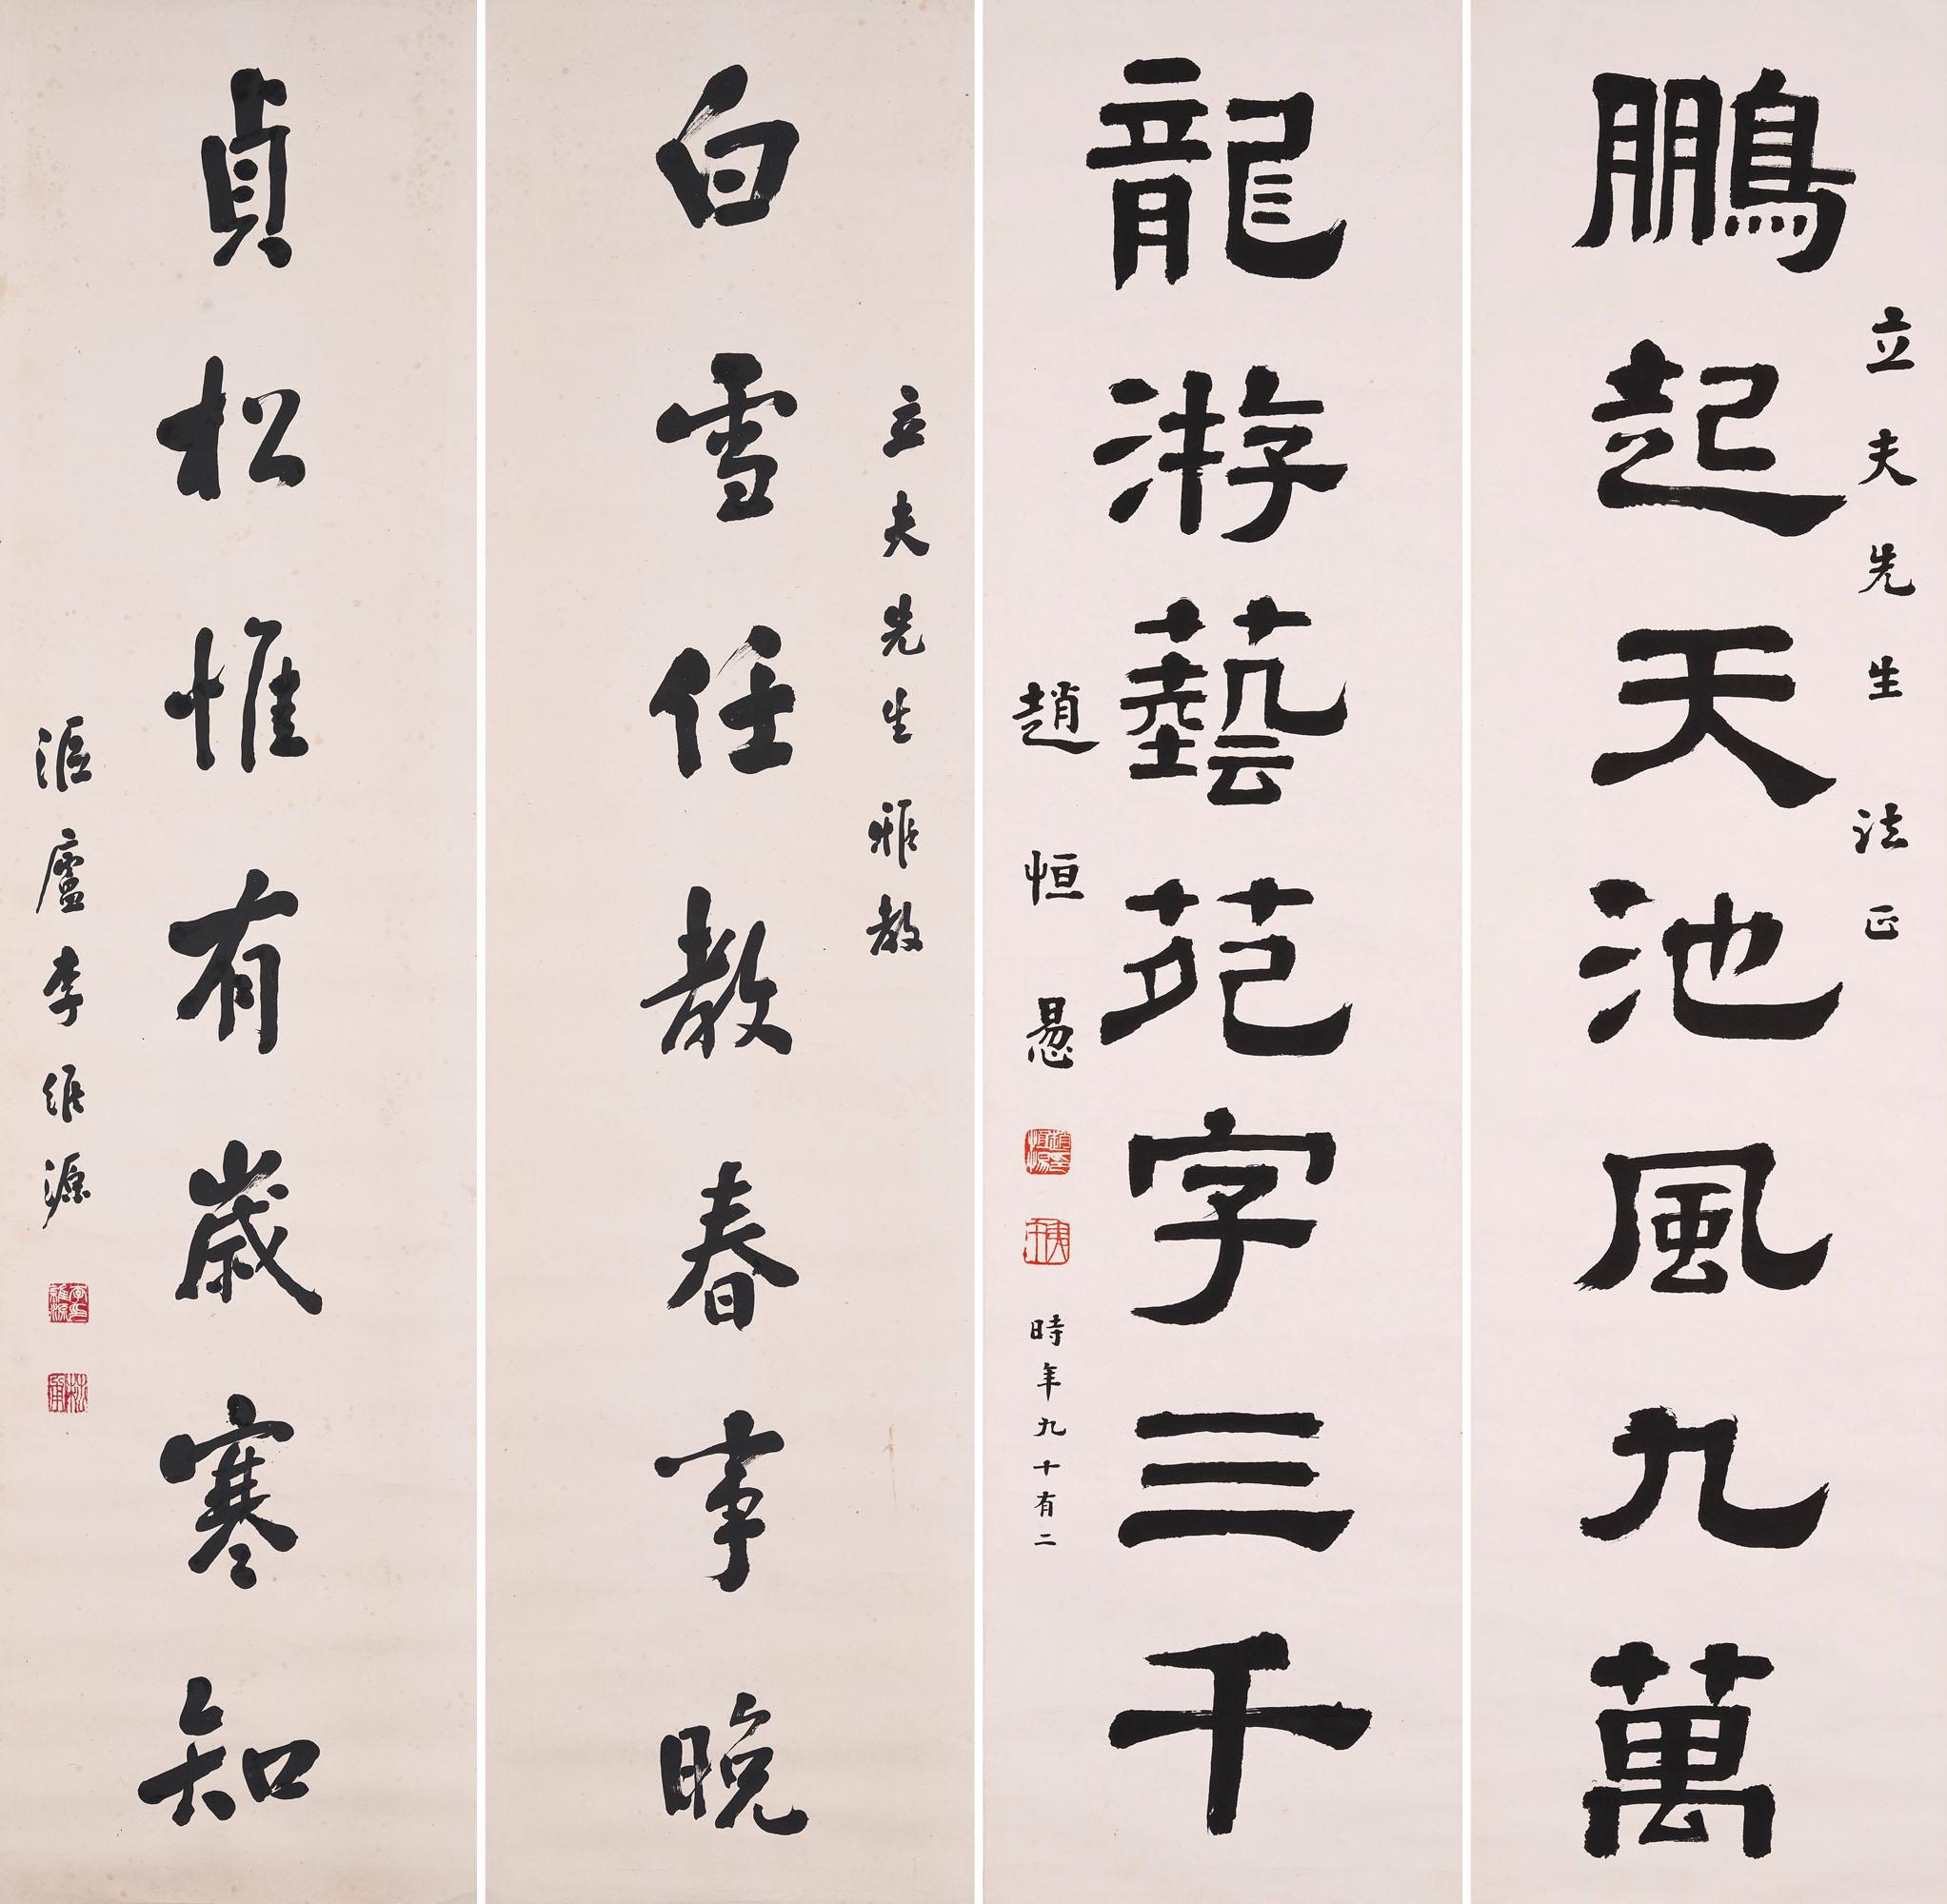 立夫先生法正
鵬起天池風九萬
龍游藝苑字三千
趙恒惖
時年九十有二
立夫先生雅教
白雪任教春事晚
貞松惟有歲寒知
漚廬李維源